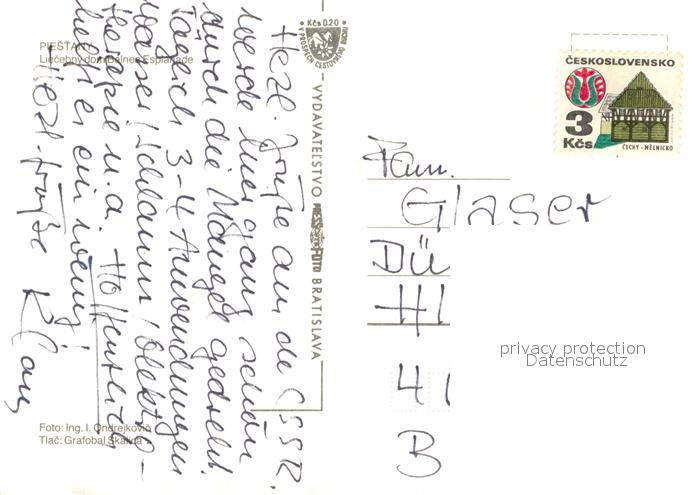 PIEŠŤANY
Liečebný dom Balnea Esplanade
Herzl. Grüße aus de ČSSR.
werde hier ganz schön
durch die Mangel gedreht.
Täglich 3-4 Anwendungen
Wasser / Schlamm / Elektro-
therapie u.a. Hoffentlich
helfts ein wenig
Herzl. Grüße Klaus
Foto: Ing. I. Ondrejkovič
Tlač: Grafobal Skalica
Kčs 0.20
V PROSPECH CESTOVNÉHO RUCHU
VYDAVATEĽSTVO PRESSFOTO BRATISLAVA
ČESKOSLOVENSKO
3
Kčs
ČECHY - MĚLNICKO
Fam.
Glaser
Dü
H
41
B
privacy protection
Datenschutz